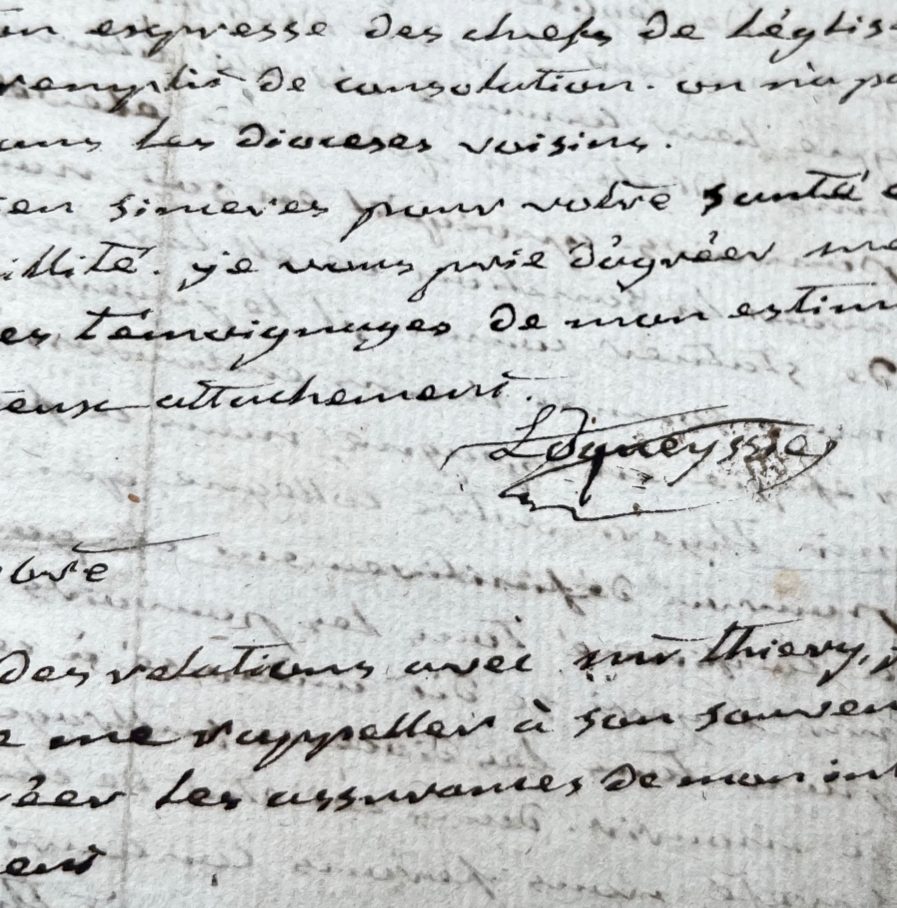 on expresse des chefs de l'églis
remplis de consolution. on n'a pa
ans les dioceses voisins.
en sinceres pour votre santé e
illité. je vous prie d'agréer me
es témoignages de mon estim
eux attachement.
obre
des relations avec mr. thiery, j
e me rappeller à son souven
réer les assurances de mon int
ent